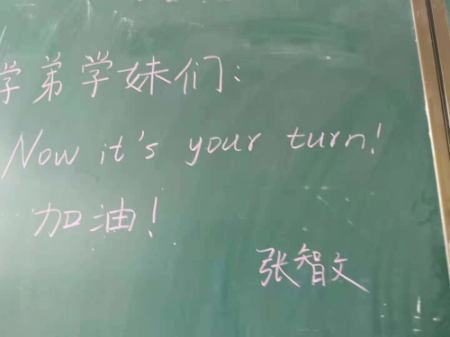 学弟学妹们:
Now it's your turn!
加油!
张智文